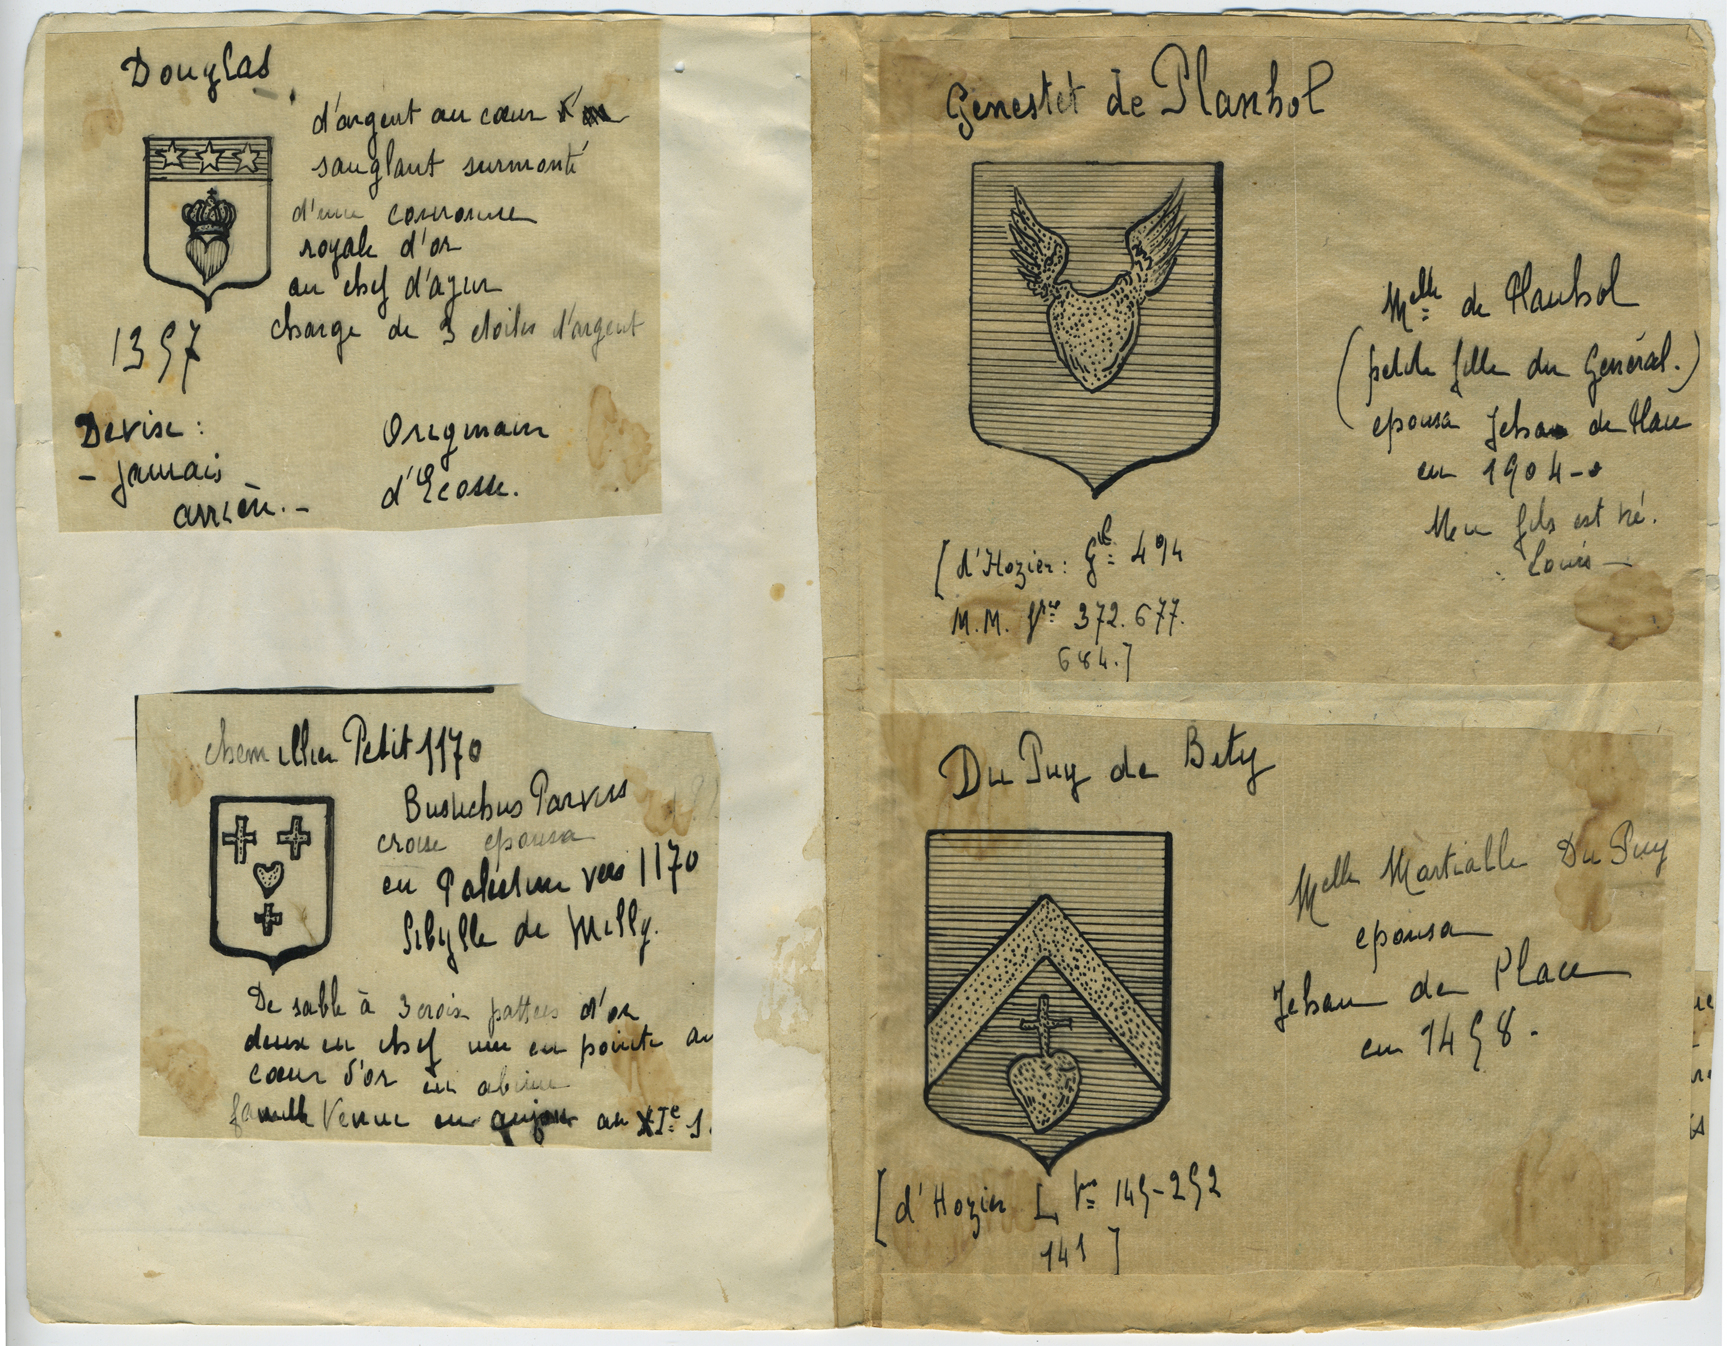 Douglas
d'argent au cœur
sanglant surmonté
d'une couronne
royale d'or
au chef d'azur
charge de 3 etoiles d'argent
1357
Devise :
- Jamais
arrière. -
Originaire
d'Ecosse.
chemillier Petit 1170
Eustachus Parvus
croise epousa
en Palestine vers 1170
Sibylle de Milly.
De sable à 3 croix pattees d'or
deux en chef une en pointe au
cœur d'or en abime
famille Venue en anjou au XIe s.
Genestet de Planhol
Melle de Planhol
(petite fille du Général.)
epousa Jehan de Place
en 1904 -
fils est né.
Louis -
[d'Hozier : Gle 494
M.M. Vre 372. 677.
684.]
Du Puy de Bety
Melle Martialle Du Puy
epousa
Jehan de Place
en 1458 -
[d'Hozier L Vre 145-252
141 ]